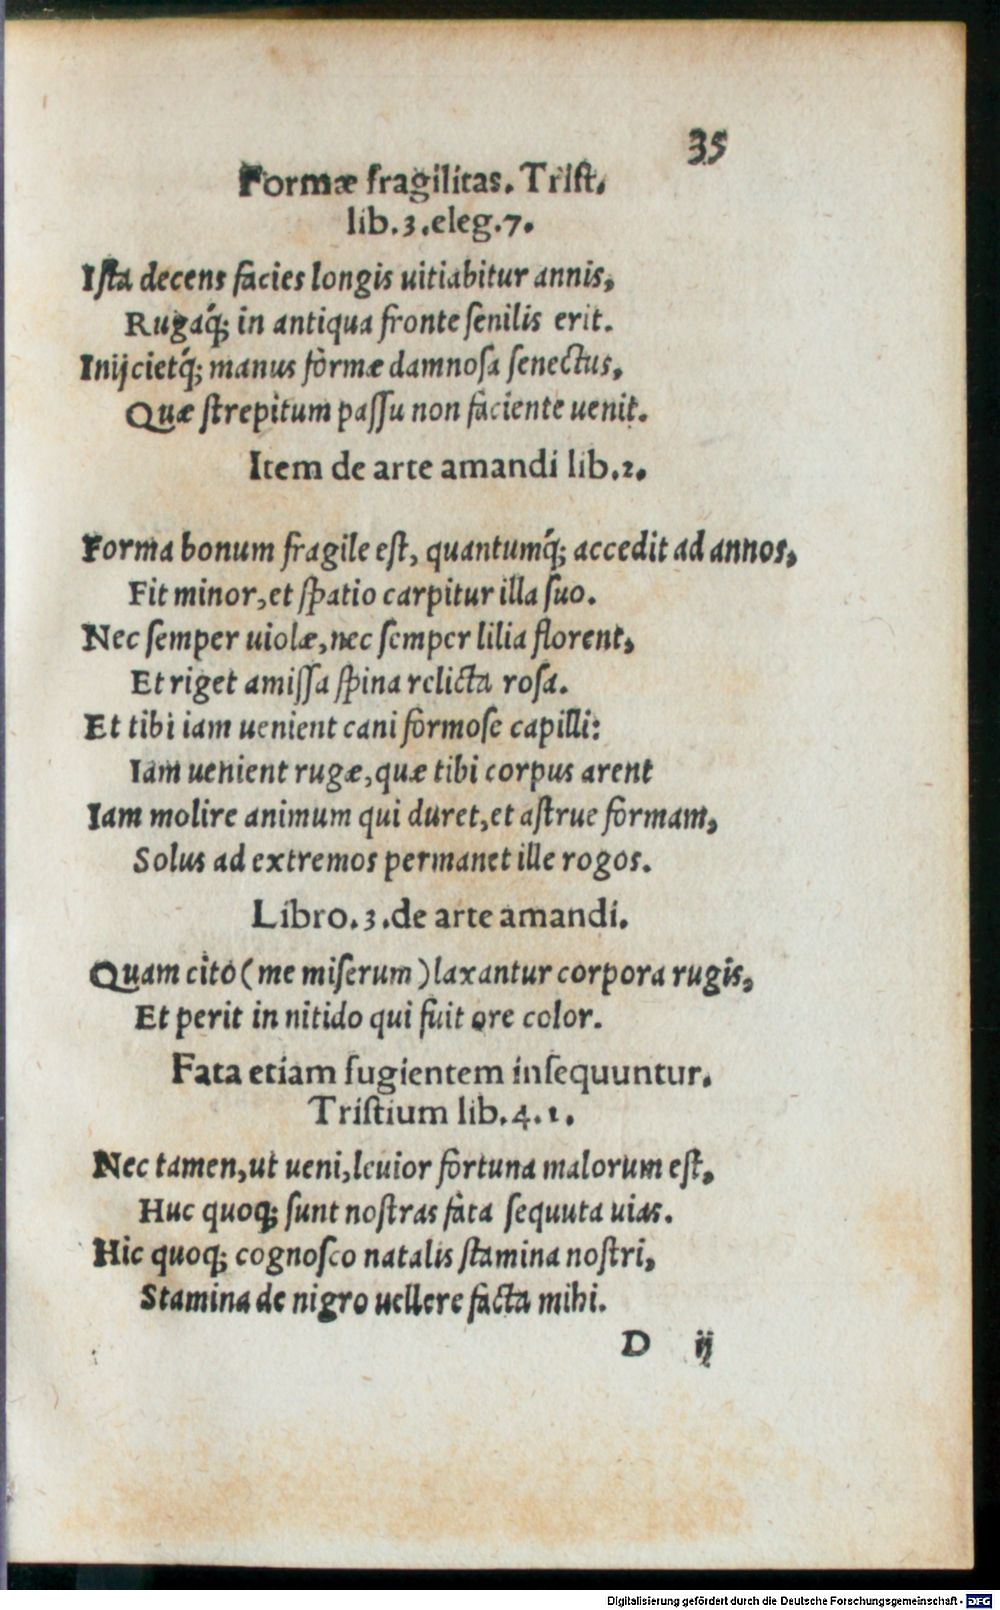 35
Formæ fragilitas. Trist.
lib.3.eleg.7.
Ista decens facies longis uitiabitur annis,
Rugaq́; in antiqua fronte senilis erit.
Inijcietq́; manus formæ damnosa senectus,
Quæ strepitum passu non faciente uenit.
Item de arte amandi lib.2.
Forma bonum fragile est, quantumq́; accedit ad annos,
Fit minor, et spatio carpitur illa suo.
Nec semper uiolæ, nec semper lilia florent,
Et riget amissa spina relicta rosa.
Et tibi iam uenient cani formose capilli:
Iam uenient rugæ, quæ tibi corpus arent
Iam molire animum qui duret, et astrue formam,
Solus ad extremos permanet ille rogos.
Libro.3.de arte amandi.
Quam cito (me miserum) laxantur corpora rugis,
Et perit in nitido qui fuit ore color.
Fata etiam fugientem insequuntur.
Tristium lib.4.1.
Nec tamen, ut ueni, leuior fortuna malorum est,
Huc quoq; sunt nostras fata sequuta uias.
Hic quoq; cognosco natalis stamina nostri,
Stamina de nigro uellere facta mihi.
D ij
Digitalisierung gefördert durch die Deutsche Forschungsgemeinschaft - DFG